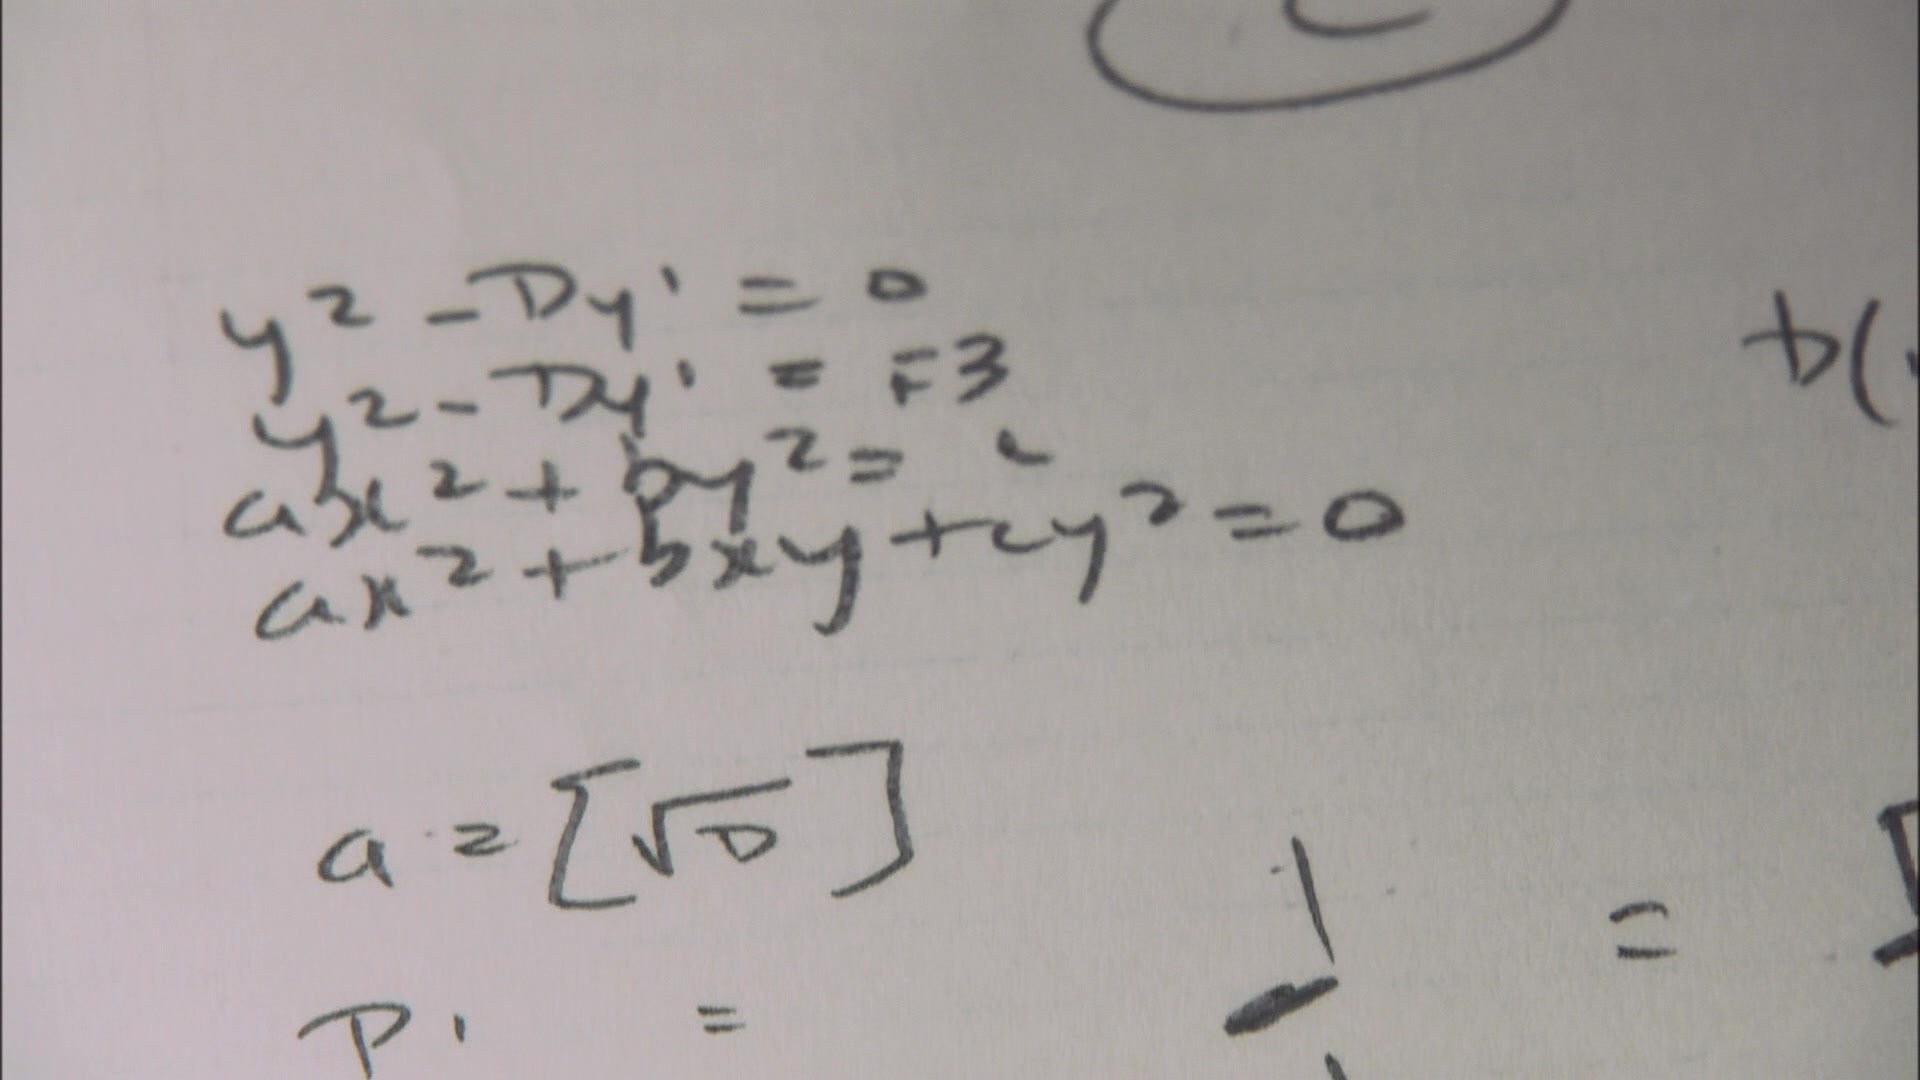 y² - Dy' = 0
y² - Dy' = F3
ax² + by² = c
ax² + bxy + cy² = 0
b(
a = [√D]
1 =
P1 =